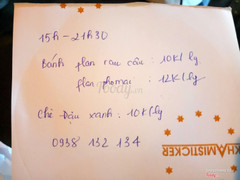 15h - 21h30
Bánh flan rau câu : 10K/ly
flan phomai : 12K/ly
Chè Đậu xanh : 10K/ly
0938 132 134
KHAMISTICKER